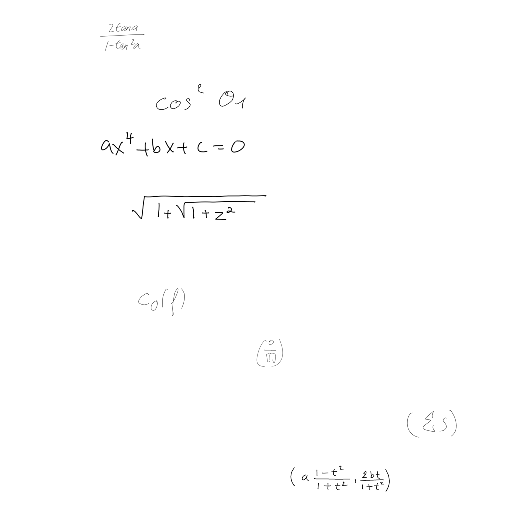 \frac{2 tan a}{1 - tan^2 a}
cos^2 θ_1
ax^4 + bx + c = 0
\sqrt{1 + \sqrt{1 + z^2}}
c_0(f)
(a \frac{1 - t^2}{1 + t^2}, \frac{2bt}{1 + t^2})